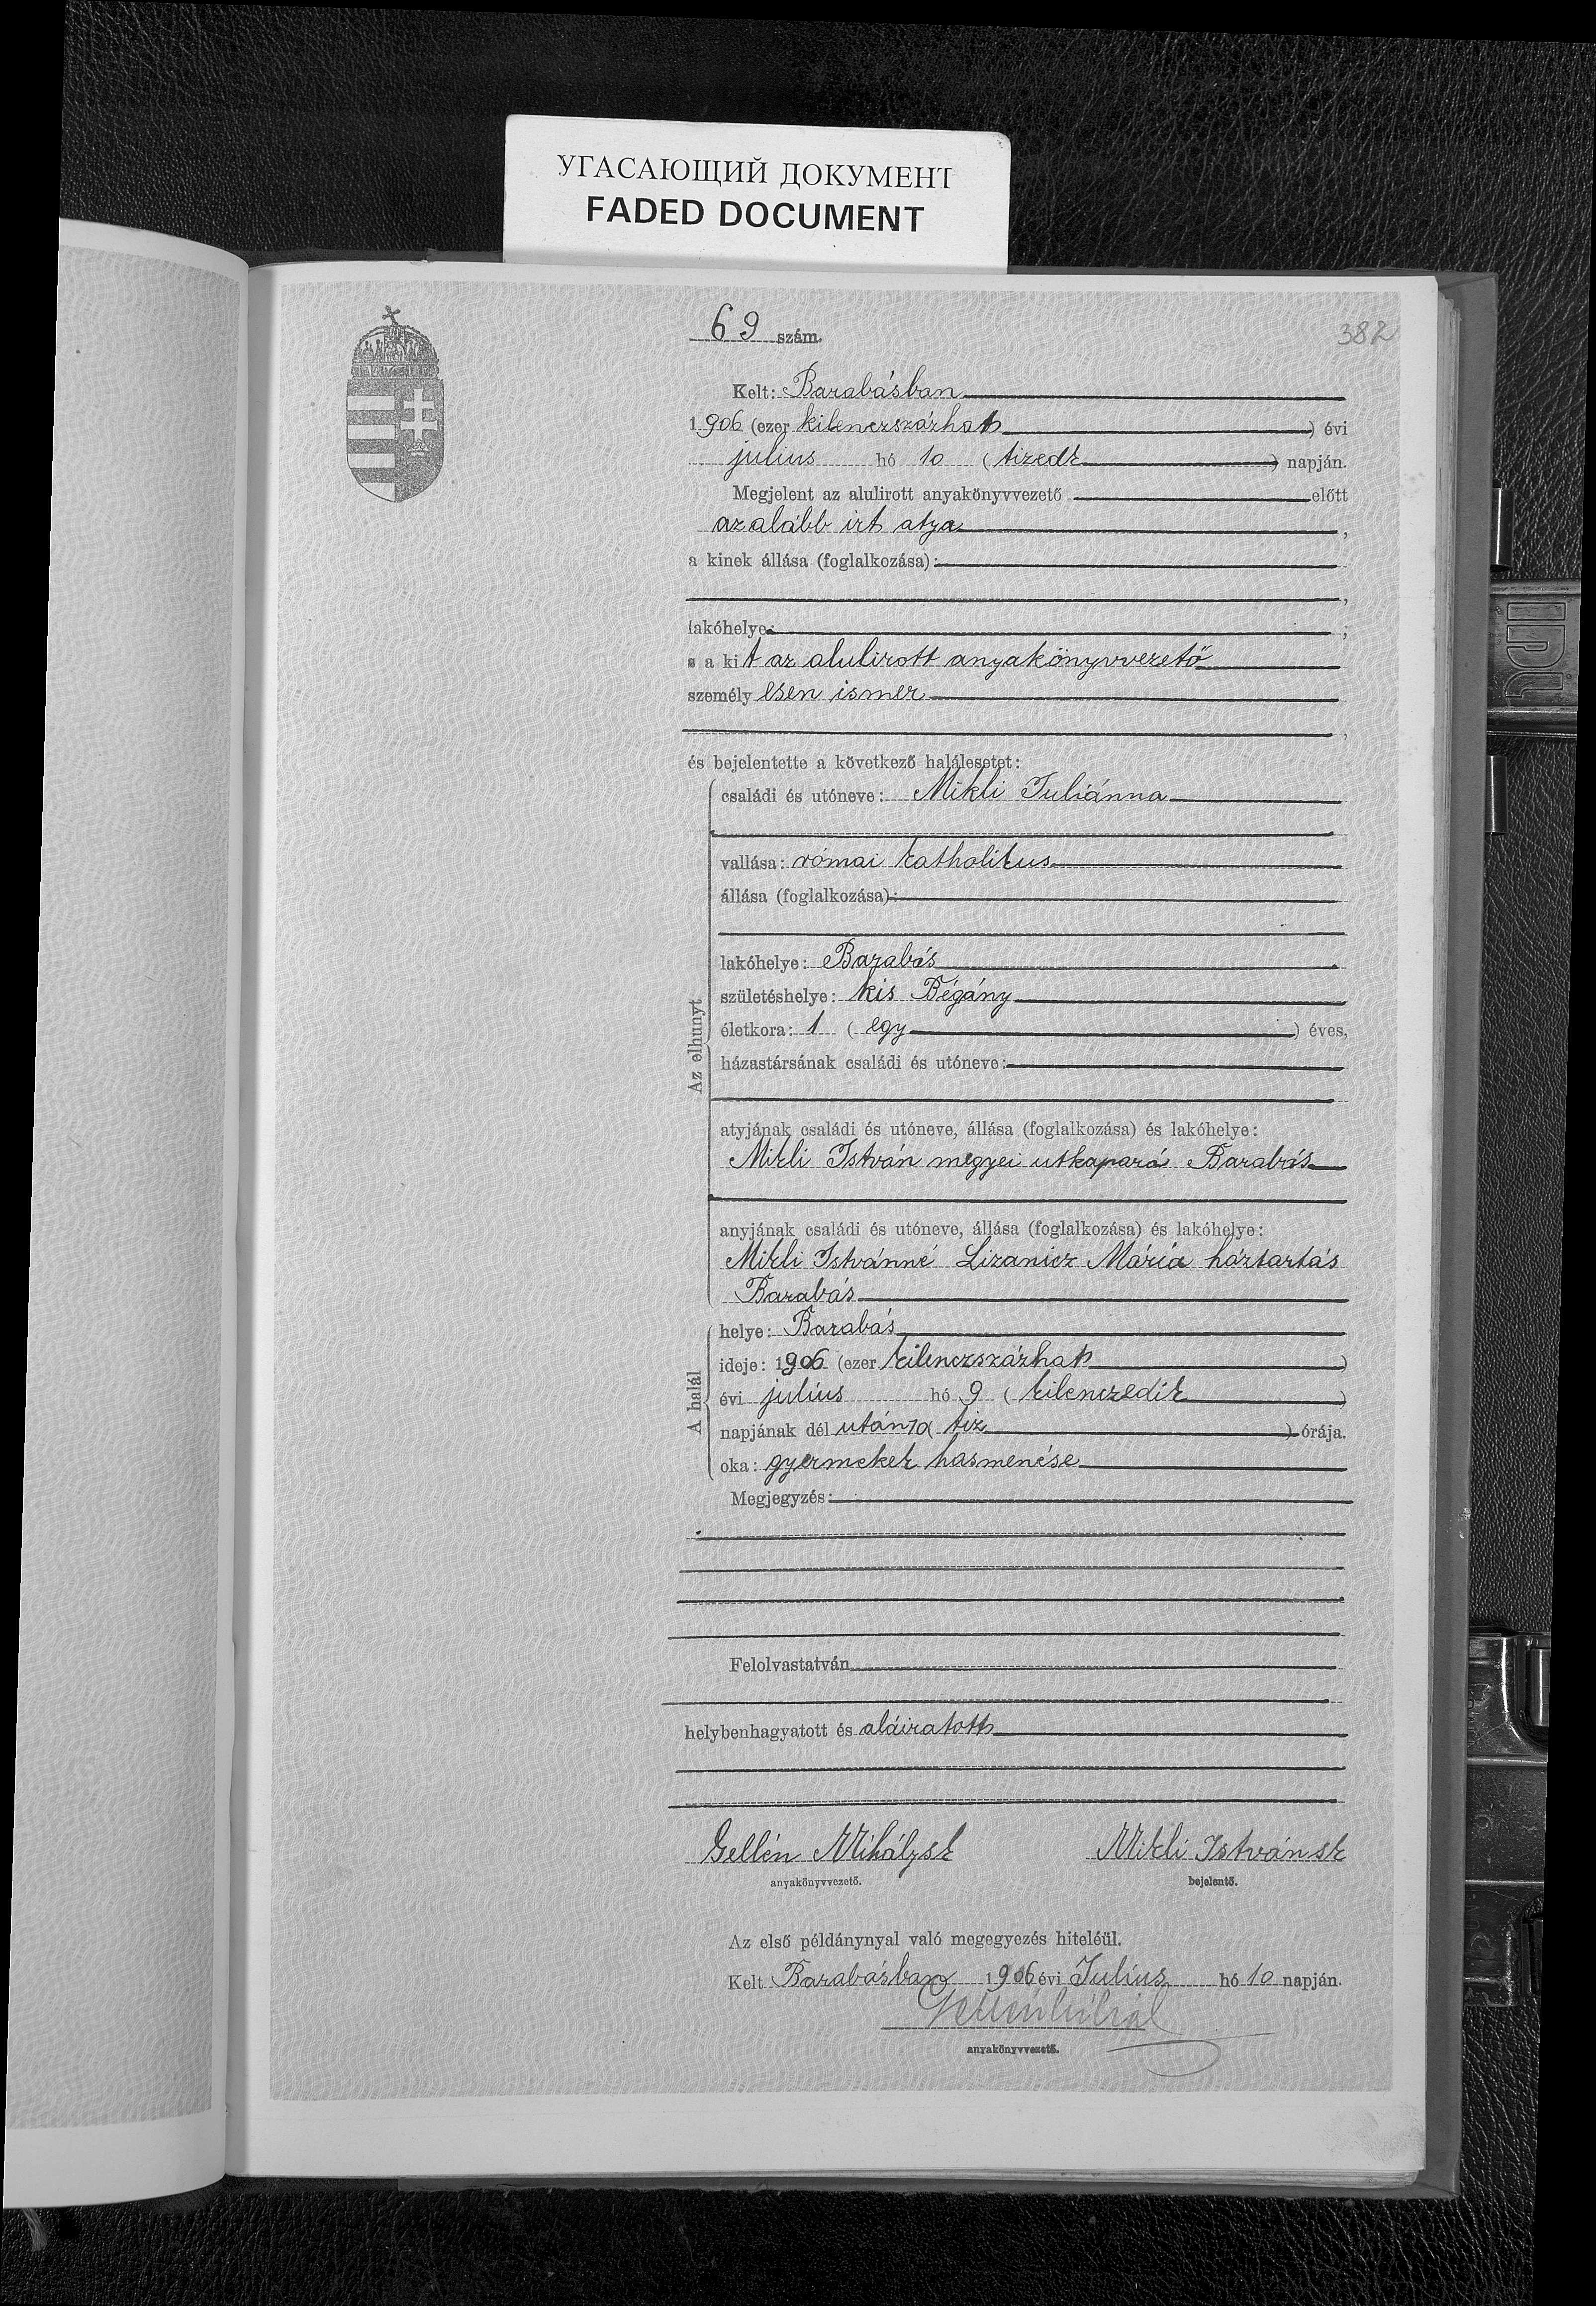 УГАСАЮЩИЙ ДОКУМЕНТ
FADED DOCUMENT
69 szám.
382
Kelt: Barabásban
1906 (ezer kilenczszázhat) évi
julius hó 10 (tizedk) napján.
Megjelent az alulirott anyakönyvvezető előtt
az alább irt atya,
a kinek állása (foglalkozása):
,
lakóhelye: ;
s a kit az alulirott anyakönyvvezető
személyesen ismer
,
és bejelentette a következő halálesetet:
Az elhunyt
családi és utóneve: Mikli Juliánna
vallása: római katholikus
állása (foglalkozása):
lakóhelye: Barabás
születéshelye: kis Bégány
életkora: 1 (egy) éves,
házastársának családi és utóneve:
atyjának családi és utóneve, állása (foglalkozása) és lakóhelye:
Mikli István megyei utkaparó Barabás
anyjának családi és utóneve, állása (foglalkozása) és lakóhelye:
Mikli Istvánné Lizanicz Mária háztartás
Barabás
A halál
helye: Barabás
ideje: 1906 (ezer kilenczszázhat)
évi julius hó 9 (kilenczedik)
napjának dél után 10 (tiz) órája.
oka: gyermekek hasmenése
Megjegyzés:
Felolvastatván
helybenhagyatott és aláiratott
Gellén Mihálysk Mikli Istvánsk
anyakönyvvezető. bejelentő.
Az első példánynyal való megegyezés hiteléül.
Kelt Barabásban 1906 évi Julius hó 10 napján.
anyakönyvvezető.